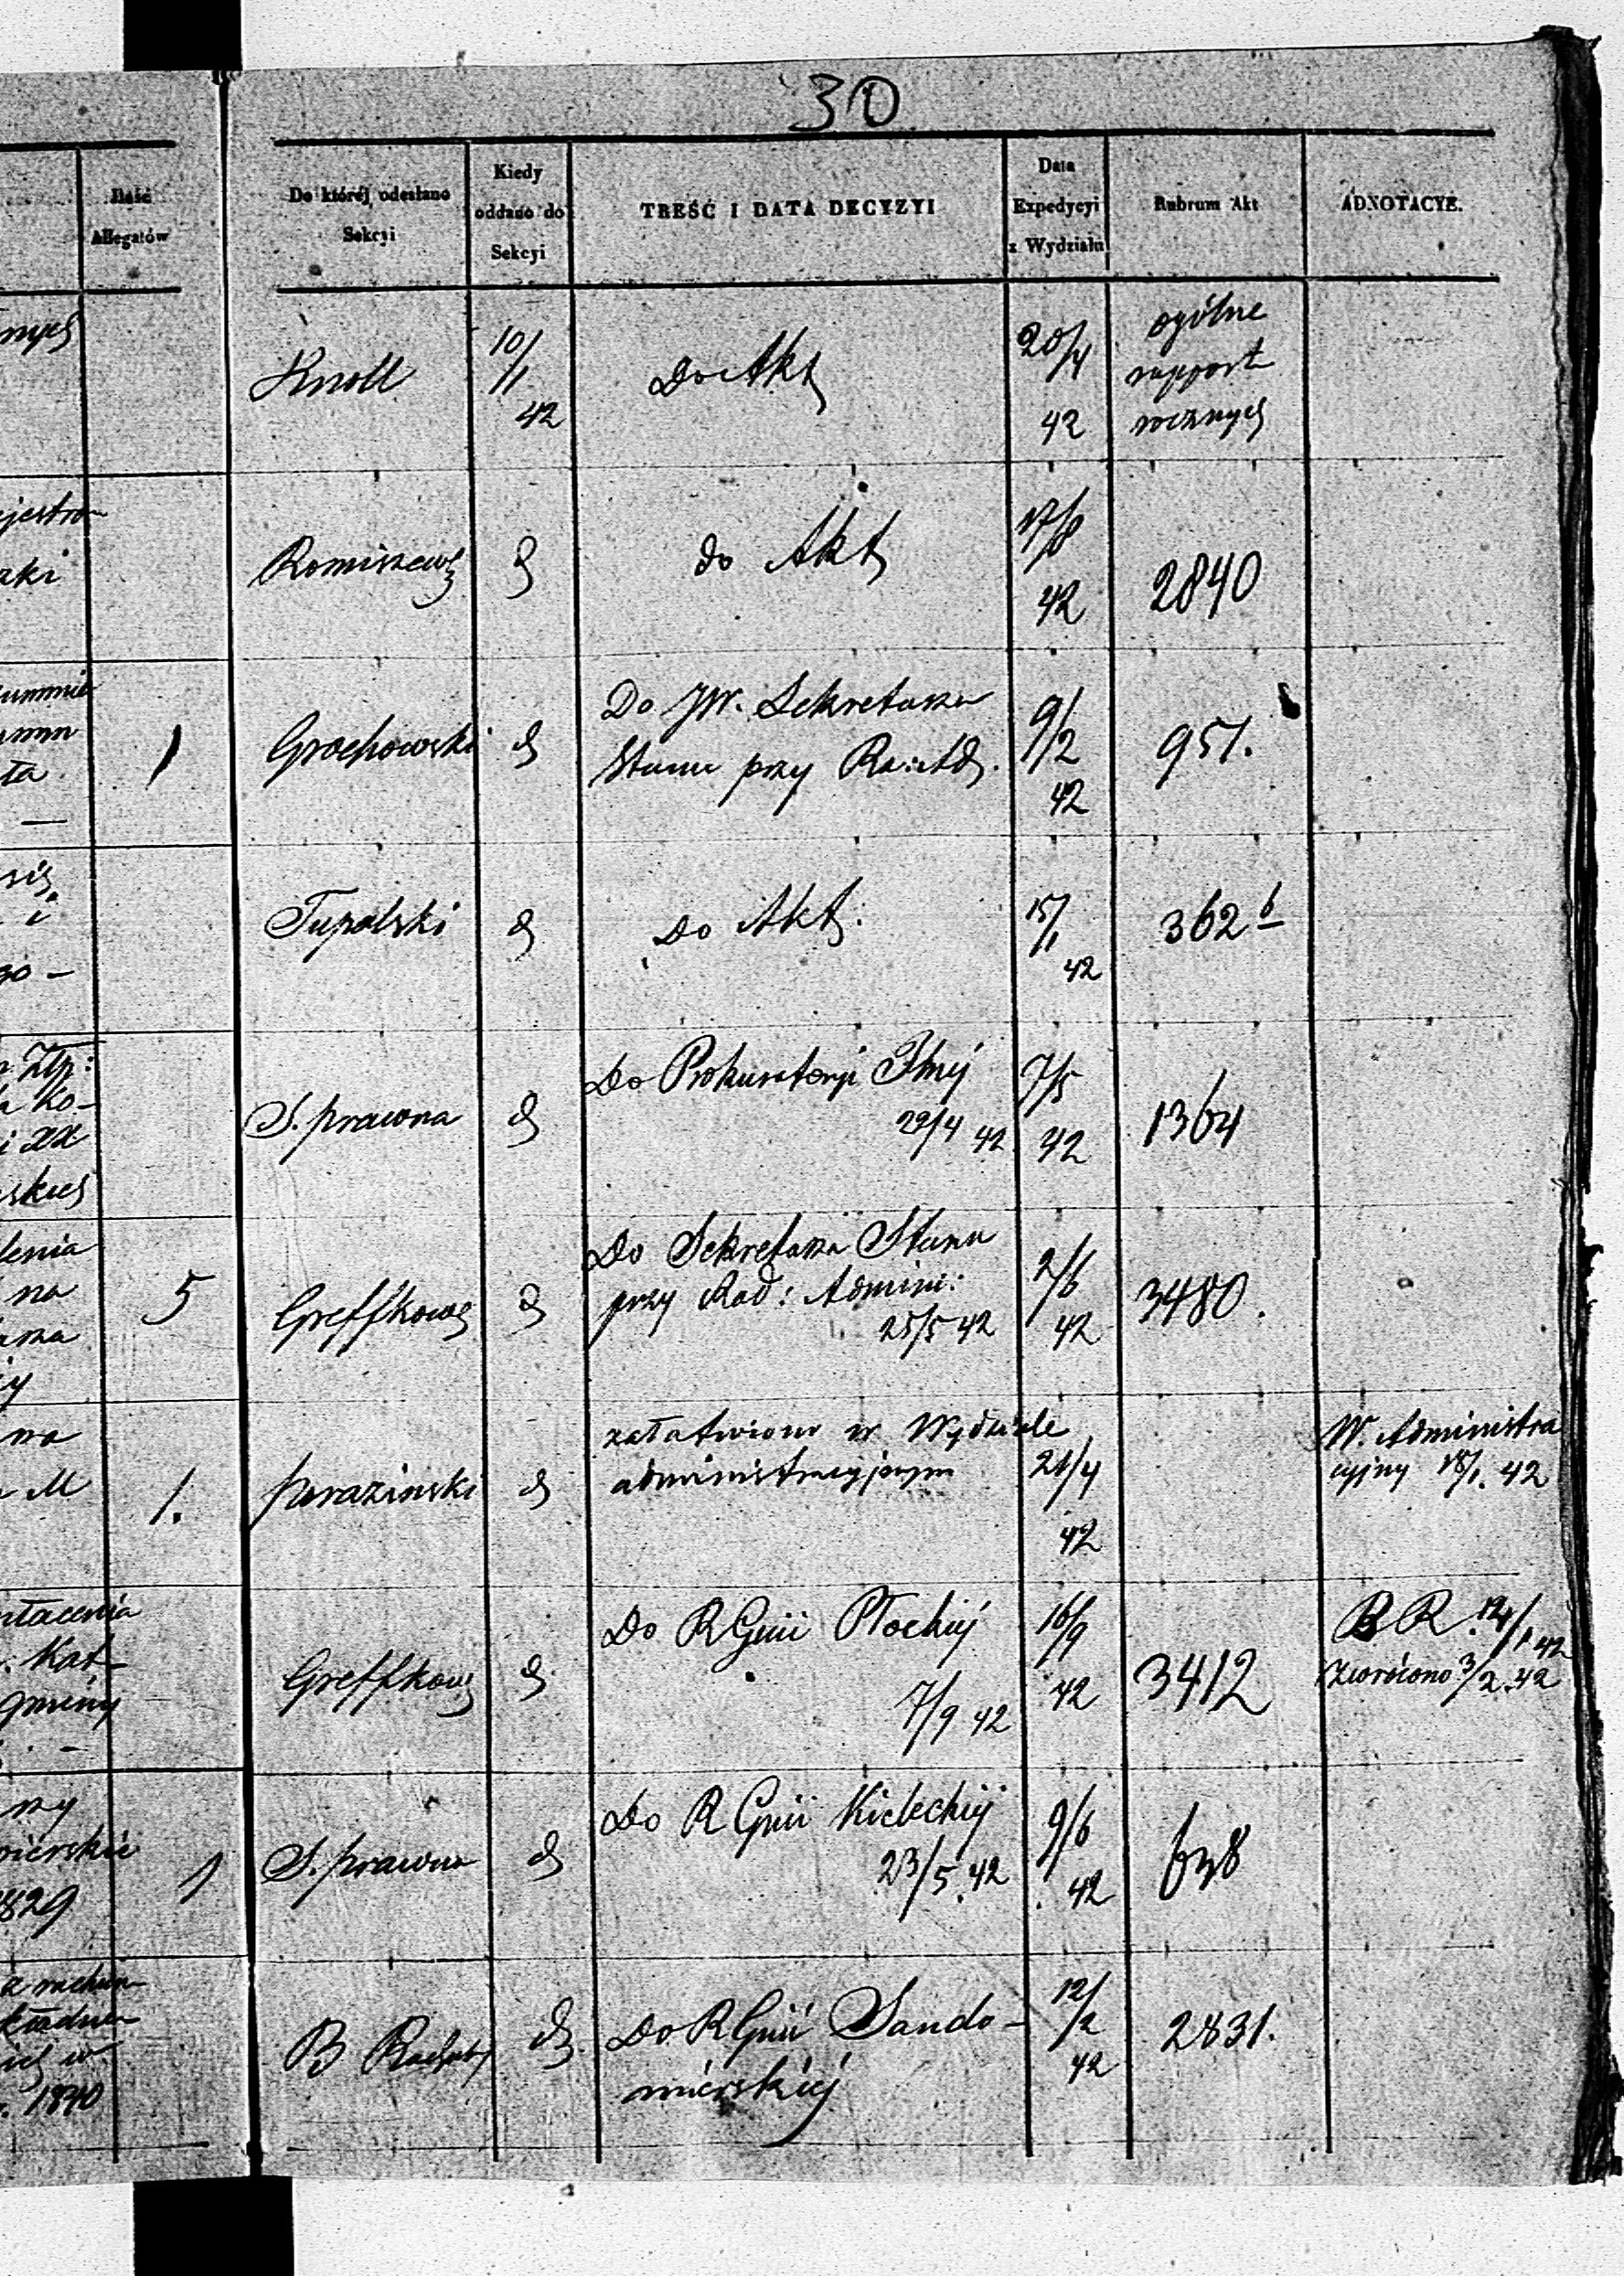 30
Ilość
Allegatów
Do któréj odesłano
Sekcyi
Kiedy
oddano do
Sekcyi
TREŚĆ I DATA DECYZYI
Data
Expedycyi
z Wydziału
Rubrum Akt
ADNOTACYE.
Knoll
10/1
42
Do Akt
20/4
42
ogólne
rapport
rocznych
zki
do Akt
17/8
42
2840
1
Grochowski
Do JW. Sekretarza
Stanu przy
9/2
42
951.
ła
Tupalski
Do Akt
15/1
42
362 b
Złp:
Ko-
i XX
S. prawna
Do Prokuratoryi
29/4 42
7/5
42
1364
skich
lenia
na
5
Greffkow
Do Sekretarza Stanu
przy Rad: Admini:
25/5 42
2/6
42
3480.
M
1.
Parazinski
załatwiono w Wydziale
administracyjnym
21/4
42
W. Administra
cyjny 18/1. 42
płacenia
Kat
gminy
Greffkow
Do R Gnii Płockiej
7/9 42
16/9
42
3412
B R. 14/1 42
zwrócono 3/2 42
1829
1
S. prawna
Do R Gnii Kieleckiej
23/5. 42
9/6
42
638
1840
B
Do R Gnii Sando-
mierskiej
12/2
42
2831.